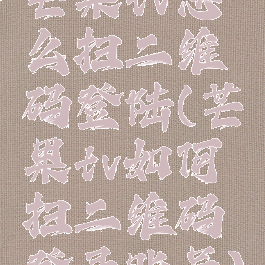 芒果tv怎
么扫二维
码登陆(芒
果tv如何
扫二维码
登录账号)